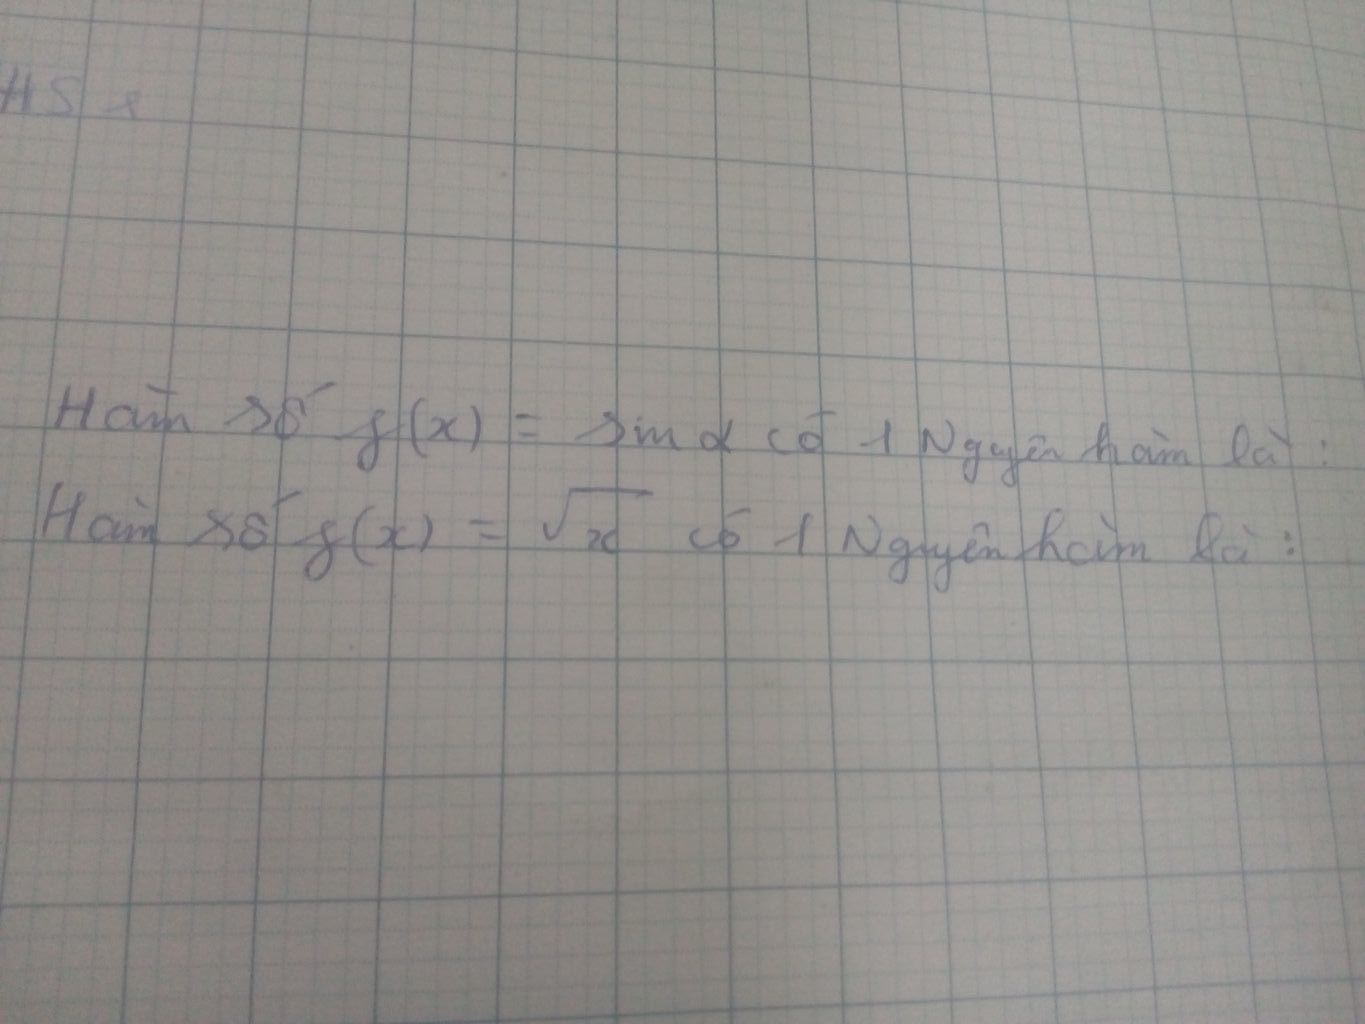 Hàm số f(x) = sin α có 1 Nguyên hàm là :
Hàm số f(x) = √x có 1 Nguyên hàm là :